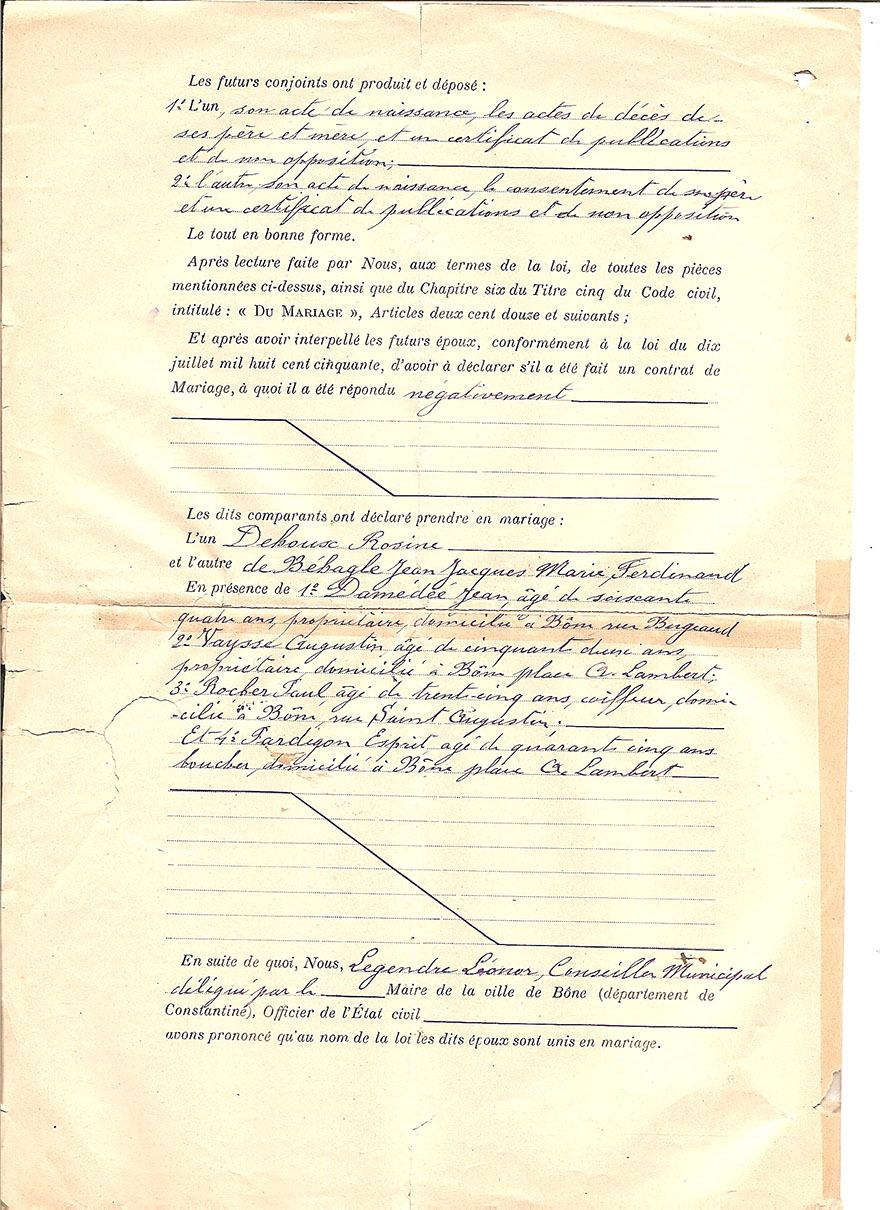 Les futurs conjoints ont produit et déposé :
1º L'un, son acte de naissance, les actes de décès de
ses père et mère, et un certificat de publications
et de non opposition;
2º l'autre, son acte de naissance, le consentement de son père
et un certificat de publications et de non opposition
Le tout en bonne forme.
Après lecture faite par Nous, aux termes de la loi, de toutes les pièces
mentionnées ci-dessus, ainsi que du Chapitre six du Titre cinq du Code civil,
intitulé : « DU MARIAGE », Articles deux cent douze et suivants ;
Et après avoir interpellé les futurs époux, conformément à la loi du dix
juillet mil huit cent cinquante, d'avoir à déclarer s'il a été fait un contrat de
Mariage, à quoi il a été répondu négativement
Les dits comparants ont déclaré prendre en mariage :
L'un Dehouse Rosine
et l'autre de Béhagle Jean Jacques Marie, Ferdinand
En présence de 1º Damédéé Jean, âgé de soixante
quatre ans, propriétaire, domicilié à Bône rue Bugeaud
2º Vaysse Augustin âgé de cinquante deux ans,
propriétaire, domicilié à Bône place A. Lambert;
3º Rocher Paul âgé de trente-cinq ans, coiffeur, domi-
-cilié à Bône, rue Saint Augustin.
Et 4º Fardigon Esprit, agé de quarante cinq ans
boucher, domicilié à Bône place A. Lambert
En suite de quoi, Nous, Legendre Léonor, Conseiller Municipal
délégué par le Maire de la ville de Bône (département de
Constantine), Officier de l'État civil
avons prononcé qu'au nom de la loi les dits époux sont unis en mariage.